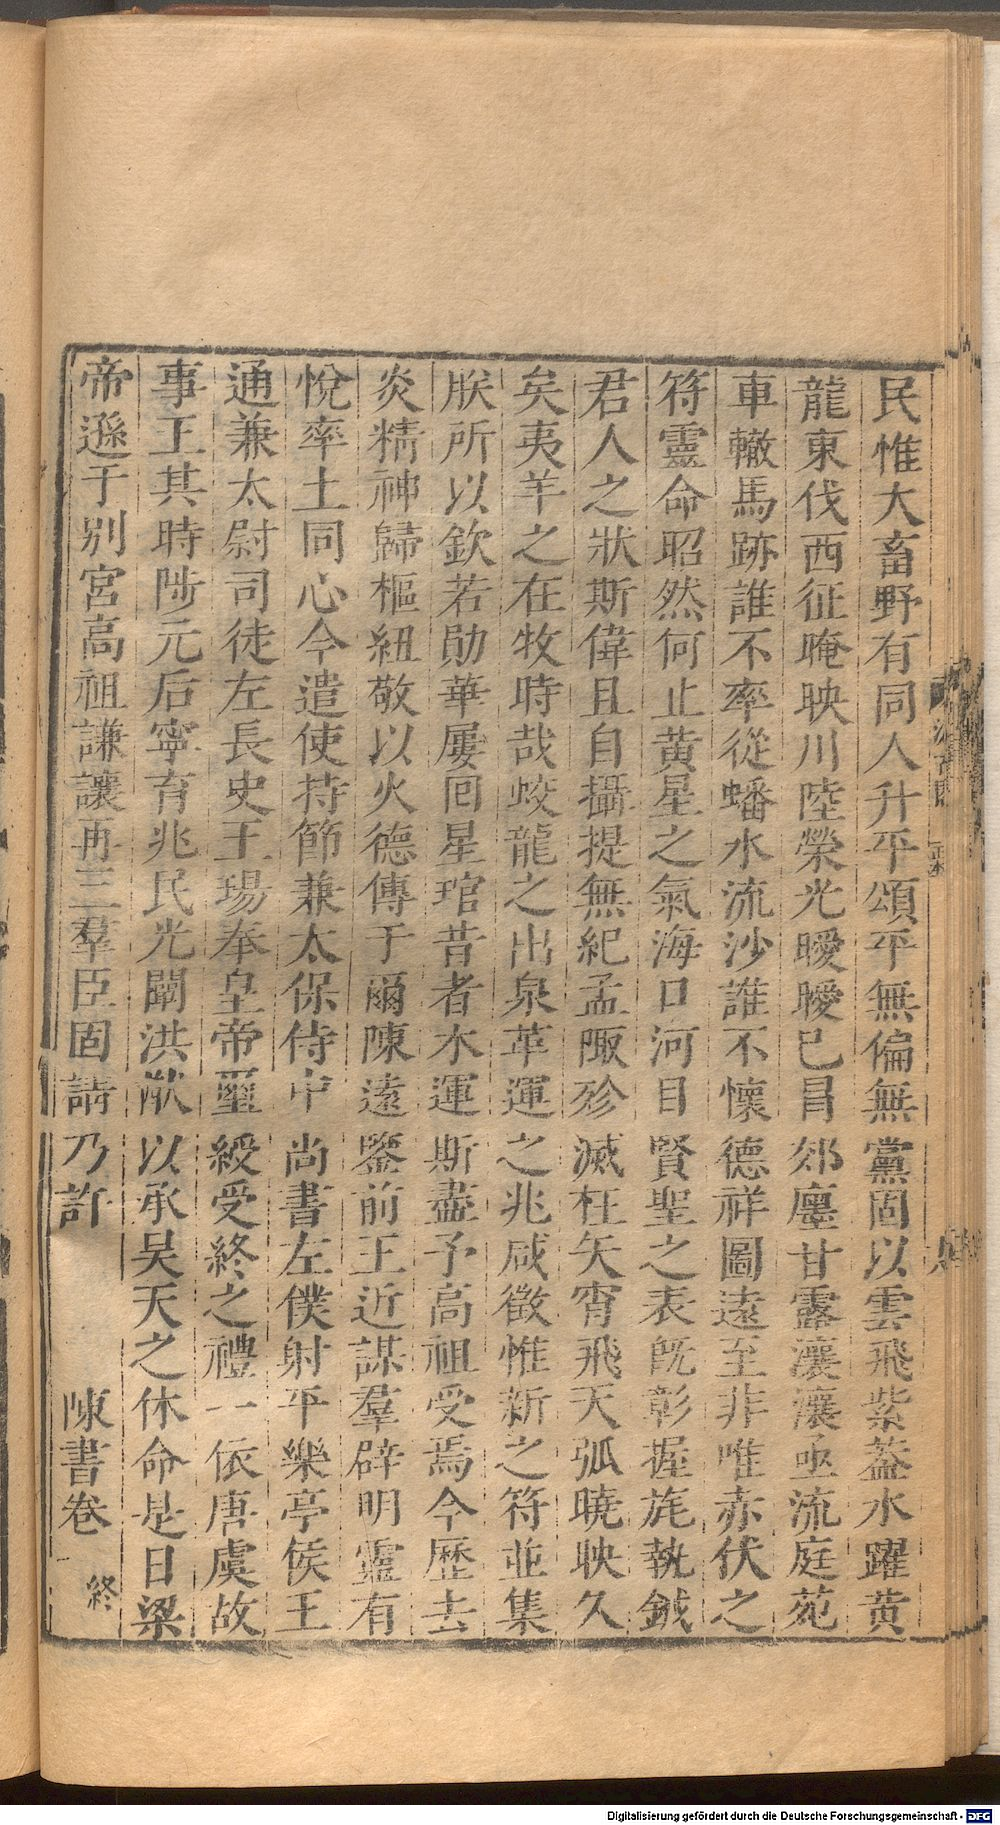 民惟大畜野有同人升平頌平無偏無黨固以雲飛紫葢水躍黃
龍東伐西征晻映川陸榮光曖曖已冒郊廛甘露瀼瀼亟流庭苑
車轍馬跡誰不率從蟠水流沙誰不懷德祥圖遠至非唯赤伏之
符靈命昭然何止黃星之氣海口河目賢聖之表旣彰握旄執鉞
君人之狀斯偉且自攝提無紀孟陬殄滅枉矢宵飛天弧曉映久
矣夷羊之在牧時哉蛟龍之出泉革運之兆咸徵惟新之符並集
朕所以欽若勛華屢回星琯昔者木運斯盡予高祖受焉今歷去
炎精神歸樞紐敬以火德傳于爾陳遠鑒前王近謀羣辟明靈有
悅率土同心今遣使持節兼太保侍中尚書左僕射平樂亭侯王
通兼太尉司徒左長史王瑒奉皇帝璽綬受終之禮一依唐虞故
事王其時陟元后寧育兆民光闡洪猷以承昊天之休命是日梁
帝遜于別宮高祖謙讓再三羣臣固請乃許
陳書卷 終
Digitalisierung gefördert durch die Deutsche Forschungsgemeinschaft - DFG